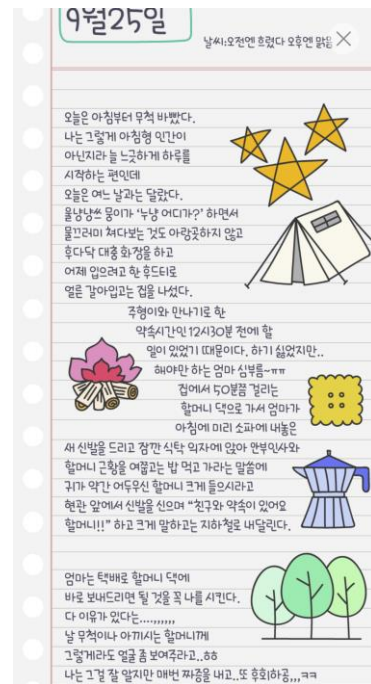 9월25일
날씨:오전엔 흐렸다 오후엔 맑음
오늘은 아침부터 무척 바빴다.
나는 그렇게 아침형 인간이
아닌지라 늘 느긋하게 하루를
시작하는 편인데
오늘은 여느 날과는 달랐다.
울냥냥쓰 뭉이가 '누냥 어디가?' 하면서
물끄러미 쳐다보는 것도 아랑곳하지 않고
후다닥 대충 화장을 하고
어제 입으려고 한 후드티로
얼른 갈아입고는 집을 나섰다.
주형이와 만나기로 한
약속시간인 12시30분 전에 할
일이 있었기 때문이다. 하기 싫었지만..
해야만 하는 엄마 심부름~ㅠㅠ
집에서 50분쯤 걸리는
할머니 댁으로 가서 엄마가
아침에 미리 소파에 내놓은
새 신발을 드리고 잠깐 식탁 의자에 앉아 안부인사와
할머니 근황을 여쭙고는 밥 먹고 가라는 말씀에
귀가 약간 어두우신 할머니 크게 들으시라고
현관 앞에서 신발을 신으며 "친구와 약속이 있어요
할머니!!" 하고 크게 말하고는 지하철로 내달린다.
엄마는 택배로 할머니 댁에
바로 보내드리면 될 것을 꼭 나를 시킨다.
다 이유가 있다는....,,,,,,
날 무척이나 아끼시는 할머니께
그렇게라도 얼굴 좀 보여주라고..ㅎㅎ
나는 그걸 잘 알지만 매번 짜증을 내고..또 후회하공,,,ㅋㅋ